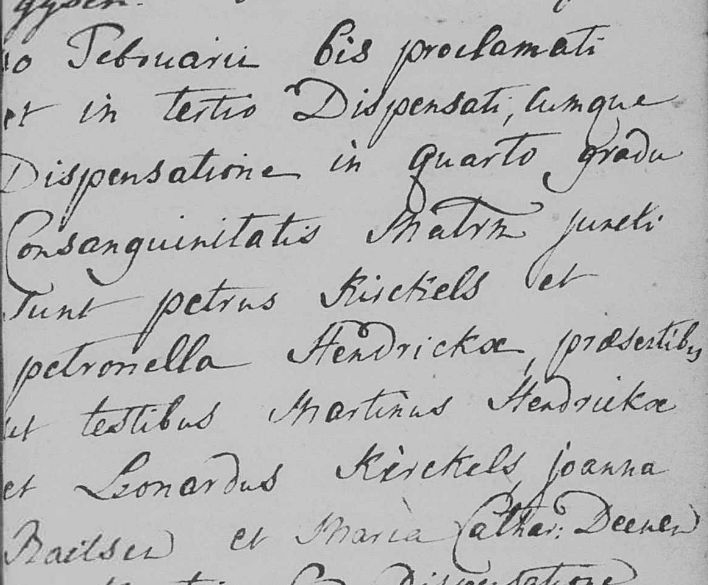 gysen.
10 Februarii bis proclamati
et in tertio Dispensati, cumque
Dispensatione in quarto gradu
Consanguinitatis Matrm juncti
sunt petrus Kirckels et
petronella Hendrickx, præsentibus
ut testibus Martinus Hendrickx
et Leonardus Kirckels, joanna
et Maria Cathar: Deenen
Dispensatione